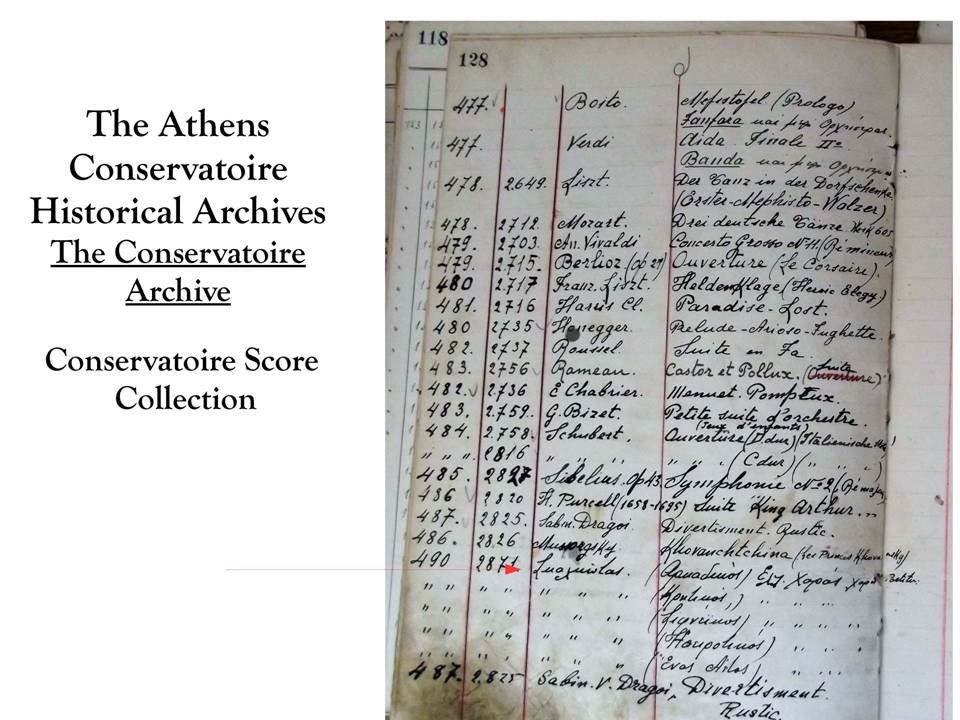 The Athens
Conservatoire
Historical Archives
The Conservatoire
Archive
Conservatoire Score
Collection
118
128
477. Boito. Mefistofel. (Prologo)
Fanfara και
477. Verdi Aida. Finale IIo
Banda και
478. 2649. Liszt. Der Tanz in der Dorfschenke
(Erster-Mephisto-Walzer)
478. 2712. Mozart. Drei deutsche Tänze. Werk 605
479. 2703. An. Vivaldi Concerto Grosso No 11. (Ré mineur)
479. 2715. Berlioz (op 21) Ouverture (Le Corsaire).
480 2717 Franz. Liszt. Heldenklage (Heroic Elegy)
481. 2716 Harris Cl. Paradise-Lost.
480 2735 Honegger. Prelude-Arioso-Fughette.
482. 2737 Roussel. Suite en Fa.
483. 2756 Rameau. Castor et Pollux. (Suite)
482. 2736 E Chabrier. Menuet. Pompeux.
483. 2759. G. Bizet. Petite suite d'orchestre.
(Jeux d'enfants)
484. 2758. Schubert. Ouvertüre (D dur) (Italienische
" " " 2816 " " " " " " (C dur) ( " " )
485. 2827 Sibelius. Op 43. Symphonie No 2 (Ré majeur)
486 2820 H. Purcell (1658-1695) Suite "King Arthur. "
487. 2825. Sabin. Dragoi. Divertisment. Rustic.
486. 2826 Mussorgsky Khovanchtchina (Les Princes
490 2871
" " " " " " "
" " " " " " "
" " " " " " "
" " " " " " "
487. 2825 Sabin. V. Dragoi, Divertisment.
Rustic.